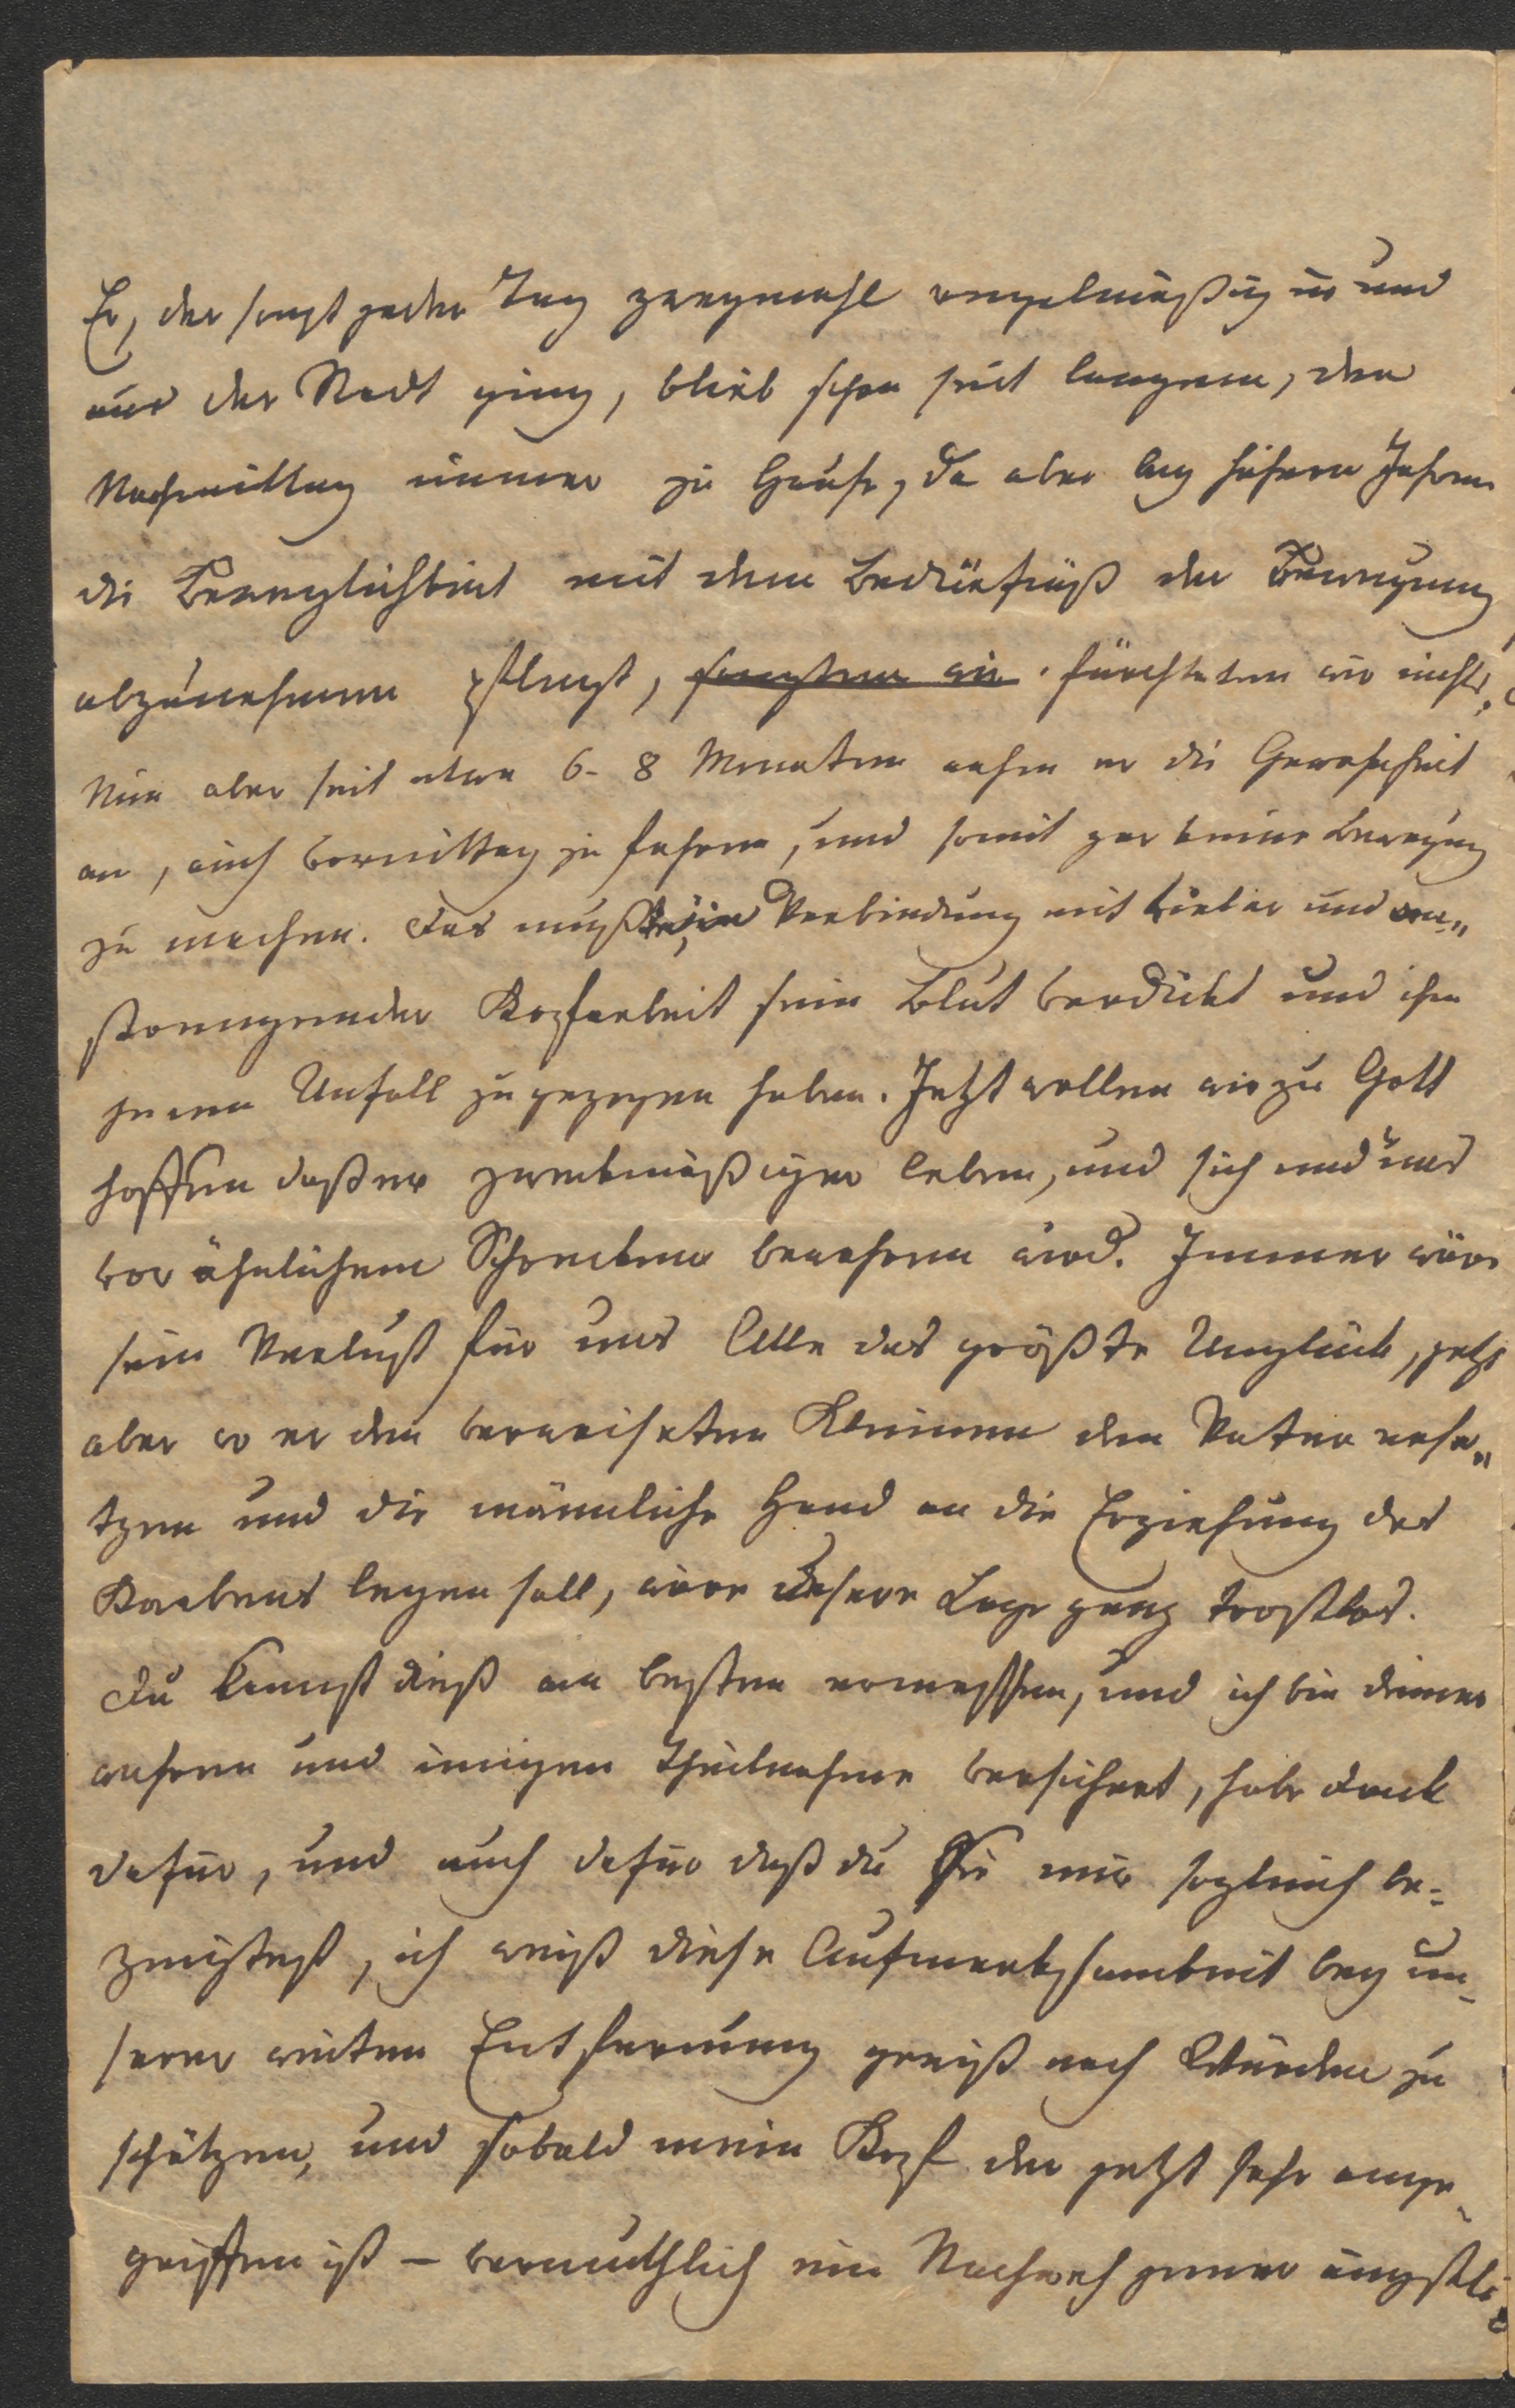 Er, der sonst jeden Tag zweymahl regelmäßig in und
aus der Stadt ging, blieb schon seit langem, den
Nachmittag immer zu Hause, da aber bey höhern Jahren
die Beweglichkeit mit dem Bedürfniß der Bewegung
abzunehmen pflegt, fürchteten wir nichts,
Nun aber seit etwa 6-8 Monaten nahm er die Gewohnheit
an, auch Vormittag zu fahren, und somit gar keine Bewegung
zu machen. Das mußte, in Verbindung mit vieler und an„
strengender Kopfarbeit sein Blut verdickt und ihm
jenen Unfall zugezogen haben. Jetzt wollen wir zu Gott
hoffen daß er zweckmäßiger leben, und sich und uns
vor ähnlichem Schrecken bewahren wird. Immer wäre
sein Verlust für uns Alle das größte Unglück, jetzt
aber wo er den verwaiseten Kleinen den Vater erse„
tzen und die männliche Hand an die Erziehung des
Knabens legen soll, wäre unsere Lage ganz trostlos.
Du kannst dieß am besten ermessen, und ich bin deiner
wahren und innigen Theilnahme versichert, habe Dank
dafür, und auch dafür daß du sie mir sogleich be=
zeigtest, ich weiß diese Aufmerksamkeit bey un-
serer weiten Entfernung gewiß nach Würden zu
schätzen, und sobald mein Kopf der jetzt sehr ange-
griffen ist – vermuthlich ein Nachweh jener ängstli-